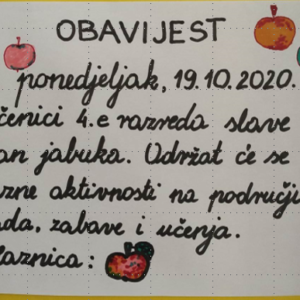 OBAVIJEST
ponedjeljak, 19.10.2020.
čenici 4.e razreda slave
an jabuka. Održat će se
zne aktivnosti na području
da, zabave i učenja.
laznica: